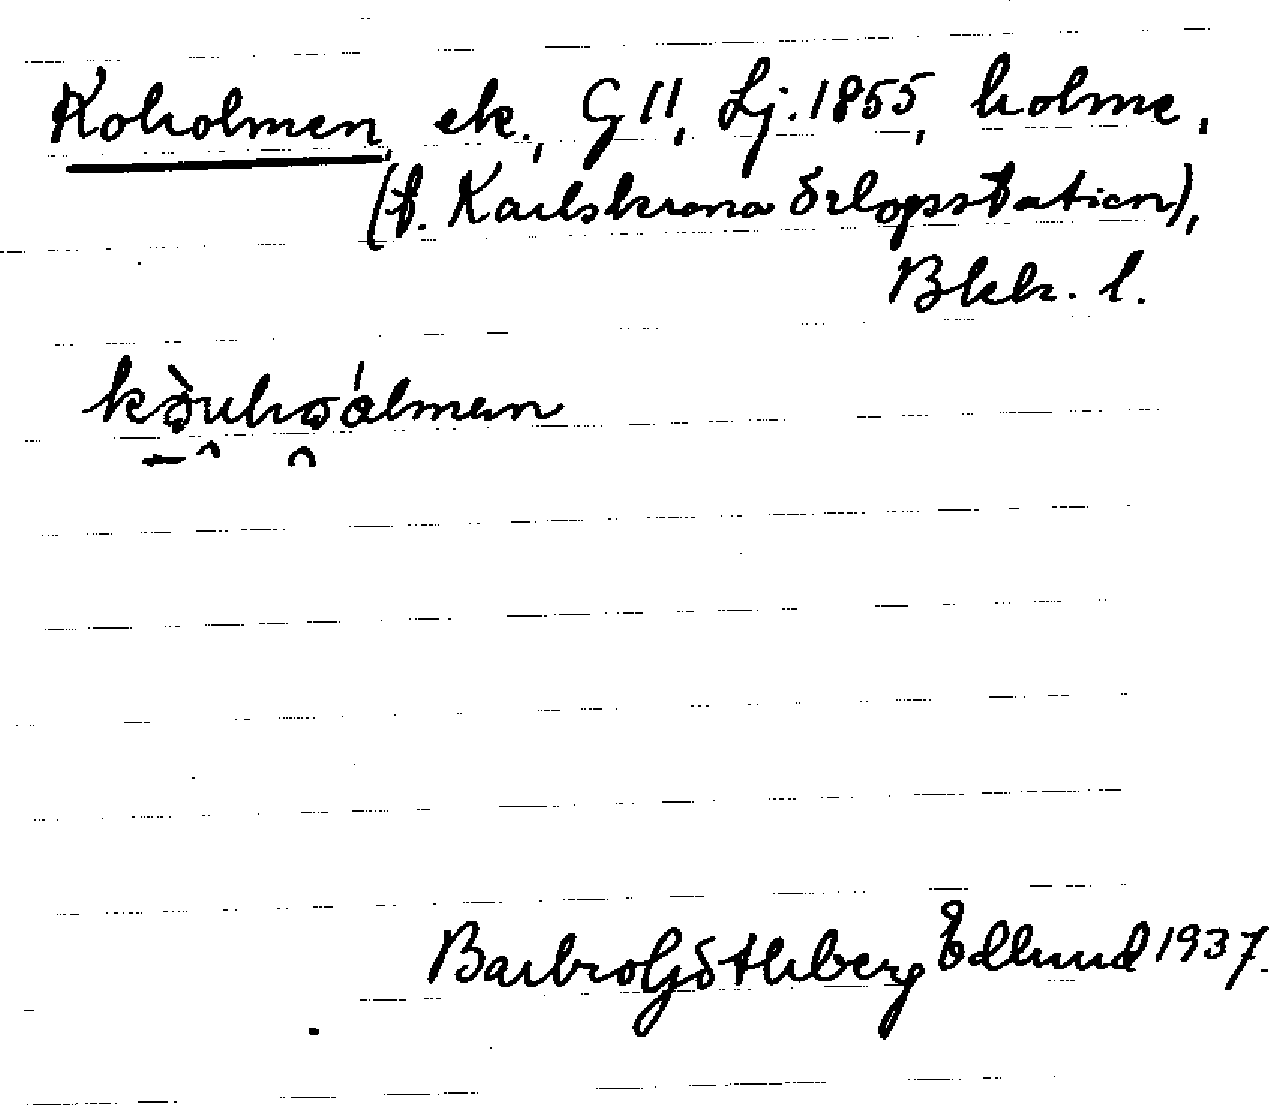 Koholmen, ek., G 11, Lj. 1855, holme,
(f. Karlskrona örlogsstation),
Blek. l.
Barbro Göthberg Edlund 1937.